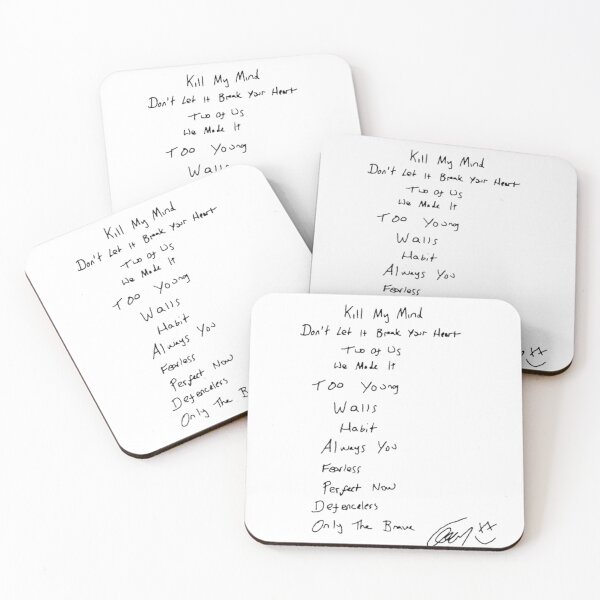 Kill My Mind
Don't Let It Break Your Heart
Two Of Us
We Made It
Too Young
Walls
Kill My Mind
Don't Let It Break Your Heart
Two Of Us
We Made It
Too Young
Walls
Habit
Always You
Fearless
Kill My Mind
Don't Let It Break Your Heart
Two Of Us
We Made It
Too Young
Walls
Habit
Always You
Fearless
Perfect Now
Defenceless
Only The B
Kill My Mind
Don't Let It Break Your Heart
Two Of Us
We Made It
Too Young
Walls
Habit
Always You
Fearless
Perfect Now
Defenceless
Only The Brave